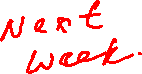 Next
week.